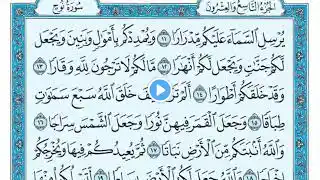 الجزء التاسع والعشرون
سورة نوح
يُرْسِلِ السَّمَاءَ عَلَيْكُم مِّدْرَارًا ١١ وَيُمْدِدْكُم بِأَمْوَالٍ وَبَنِينَ وَيَجْعَل
لَّكُمْ جَنَّاتٍ وَيَجْعَل لَّكُمْ أَنْهَارًا ١٢ مَّا لَكُمْ لَا تَرْجُونَ لِلَّهِ وَقَارًا ١٣
وَقَدْ خَلَقَكُمْ أَطْوَارًا ١٤ أَلَمْ تَرَوْا كَيْفَ خَلَقَ اللَّهُ سَبْعَ سَمَاوَاتٍ
طِبَاقًا ١٥ وَجَعَلَ الْقَمَرَ فِيهِنَّ نُورًا وَجَعَلَ الشَّمْسَ سِرَاجًا ١٦
وَاللَّهُ أَنبَتَكُم مِّنَ الْأَرْضِ نَبَاتًا ١٧ ثُمَّ يُعِيدُكُمْ فِيهَا وَيُخْرِجُكُمْ